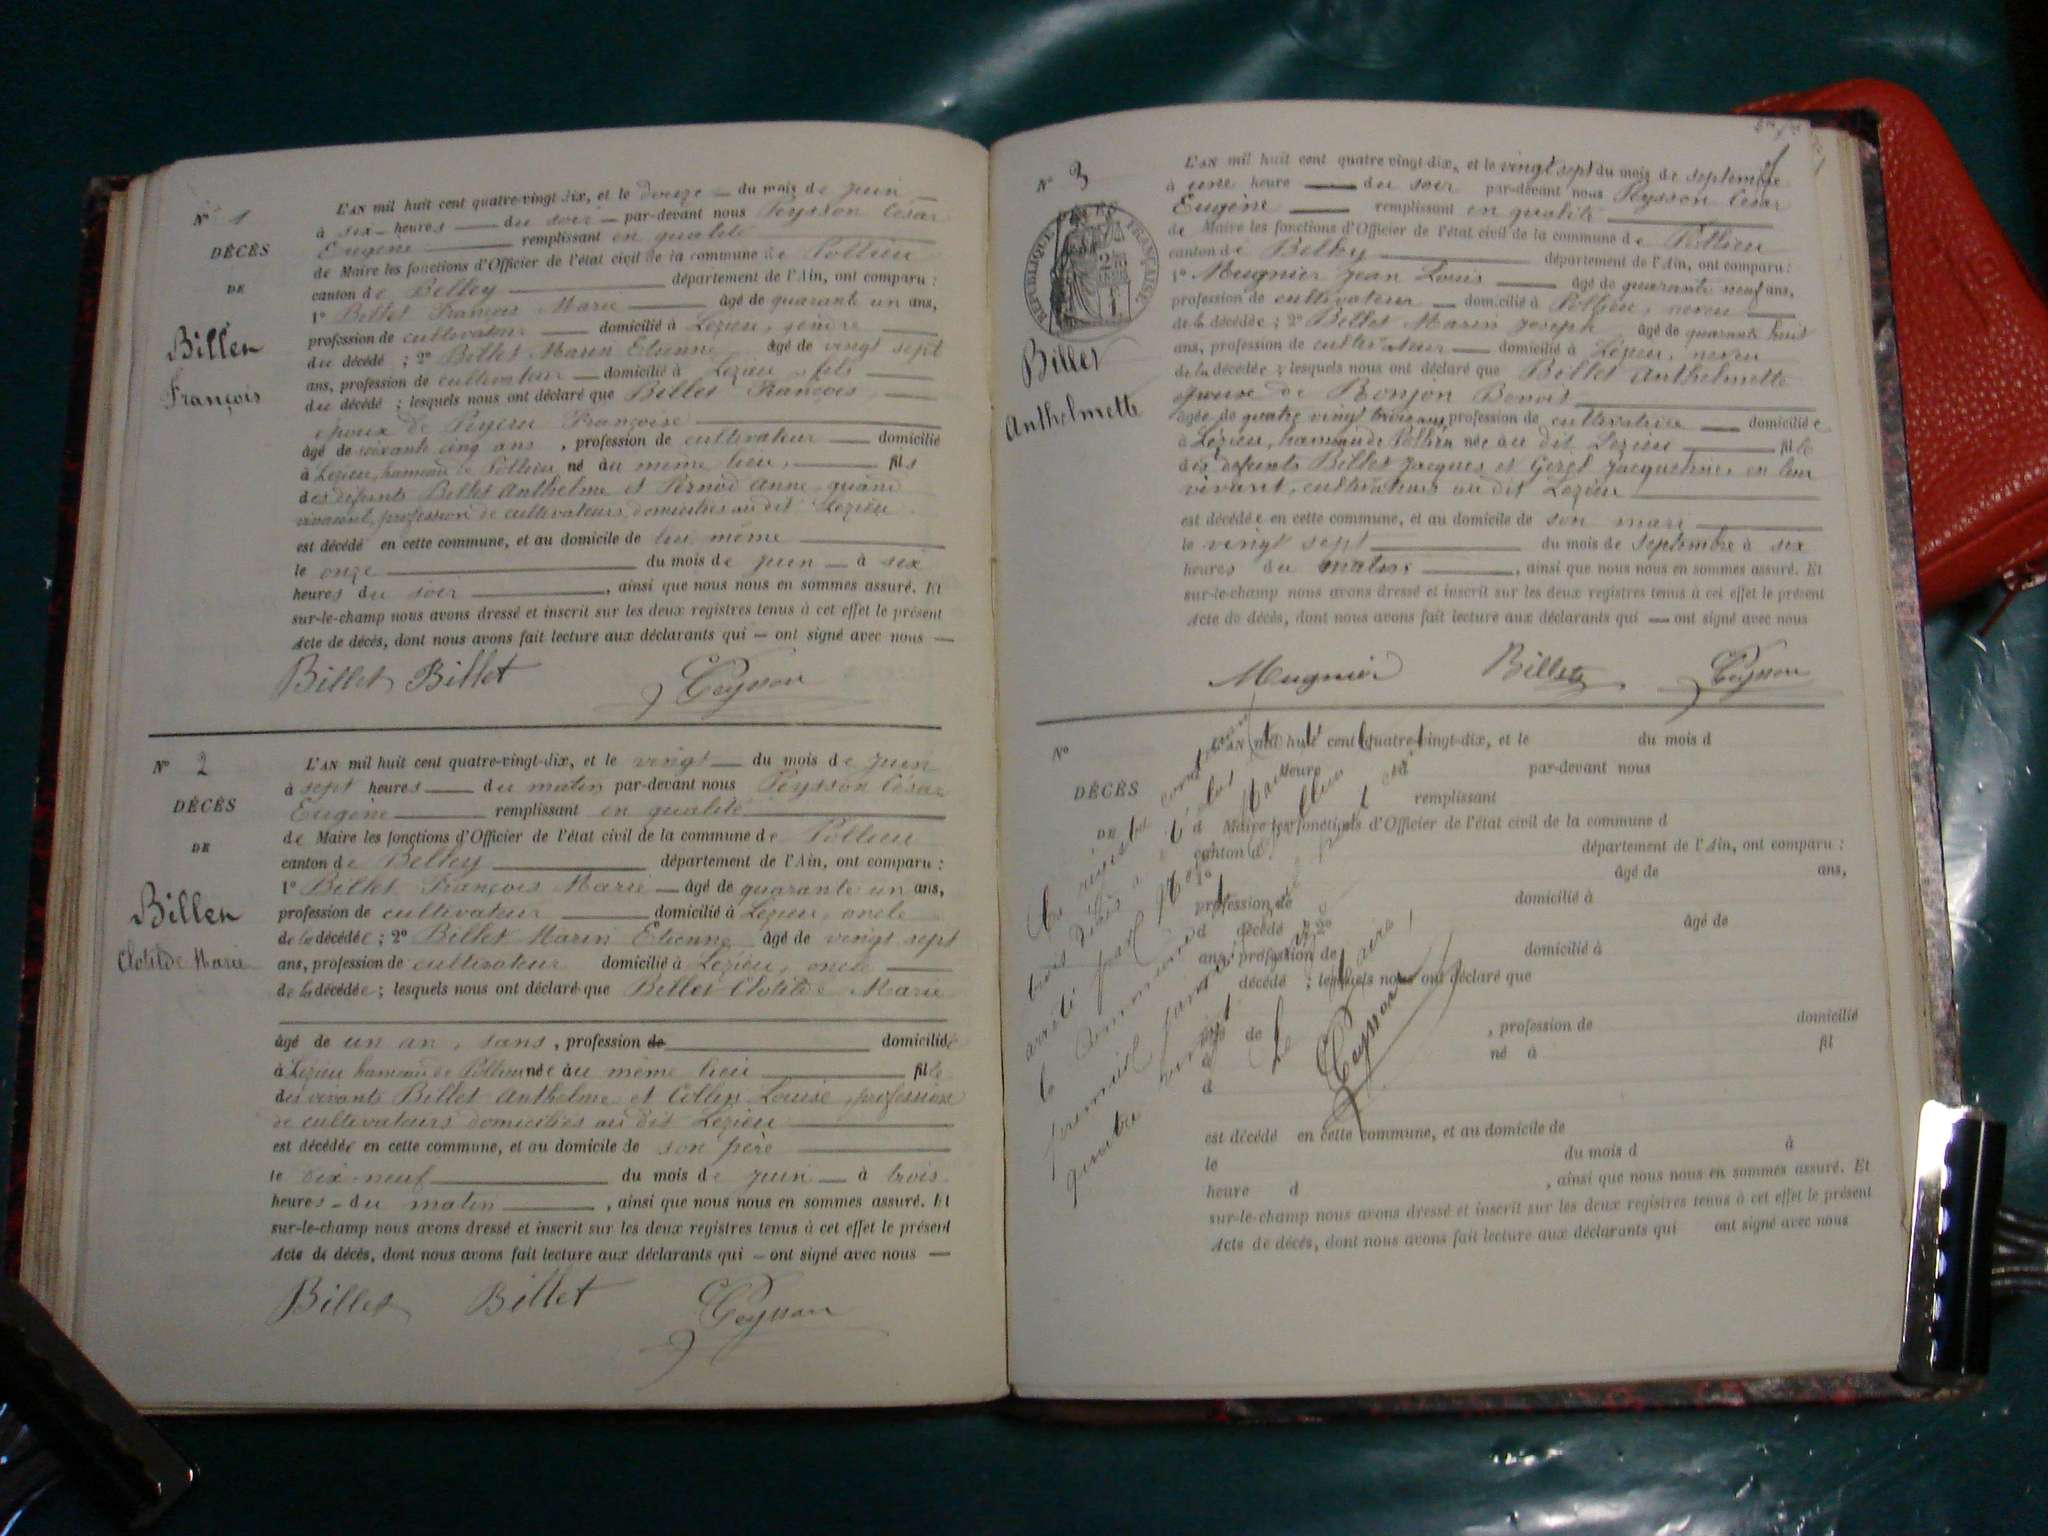 N° 1
DÉCÈS
DE
Billet
François
L'AN mil huit cent quatre-vingt-dix, et le douze du mois de juin
à six heures du soir par-devant nous Peysson César
Eugène remplissant en qualité
de Maire les fonctions d'Officier de l'état civil de la commune de Pollieu
canton de Belley département de l'Ain, ont comparu :
1° Billet François Marie âgé de quarante un ans,
profession de cultivateur domicilié à Lezieu, gendre
du décédé ; 2° Billet Marin Etienne âgé de vingt sept
ans, profession de cultivateur domicilié à Lezieu, fils
du décédé ; lesquels nous ont déclaré que Billet François,
époux de Peyeru Françoise
âgé de soixante cinq ans, profession de cultivateur domicilié
à Lezieu, hameau de Pollieu né au même lieu, fils
des défunts Billet Anthelme et Pernod Anne, quand
vivaient, profession de cultivateurs, domiciliés au dit Lezieu.
est décédé en cette commune, et au domicile de lui même
le onze du mois de juin à six
heures du soir, ainsi que nous nous en sommes assuré. Et
sur-le-champ nous avons dressé et inscrit sur les deux registres tenus à cet effet le présent
Acte de décès, dont nous avons fait lecture aux déclarants qui – ont signé avec nous –
Billet Billet Peysson
N° 2
DÉCÈS
DE
Billet
Clotilde Marie
L'AN mil huit cent quatre-vingt-dix, et le vingt du mois de juin
à sept heures du matin par-devant nous Peysson César
Eugène remplissant en qualité
de Maire les fonctions d'Officier de l'état civil de la commune de Pollieu
canton de Belley département de l'Ain, ont comparu :
1° Billet François Marie âgé de quarante un ans,
profession de cultivateur domicilié à Lezieu, oncle
de la décédée ; 2° Billet Marin Etienne âgé de vingt sept
ans, profession de cultivateur domicilié à Lezieu, oncle
de la décédée ; lesquels nous ont déclaré que Billet Clotilde Marie
âgé de un an, sans, profession de domiciliée
à Lezieu hameau de Pollieu née au même lieu fille
des vivants Billet Anthelme et Collin Louise, profession
de cultivateurs domiciliés au dit Lezieu
est décédée en cette commune, et au domicile de son père
le dix-neuf du mois de juin à trois
heures du matin, ainsi que nous nous en sommes assuré. Et
sur-le-champ nous avons dressé et inscrit sur les deux registres tenus à cet effet le présent
Acte de décès, dont nous avons fait lecture aux déclarants qui – ont signé avec nous –
Billet Billet Peysson
N° 3
RÉPUBLIQUE FRANÇAISE
Billet
Anthelmette
L'AN mil huit cent quatre-vingt-dix, et le vingt sept du mois de septembre
à une heure du soir par-devant nous Peysson César
Eugène remplissant en qualité
de Maire les fonctions d'Officier de l'état civil de la commune de Pollieu
canton de Belley département de l'Ain, ont comparu :
1° Mugnier Jean Louis âgé de quarante neuf ans,
profession de cultivateur domicilié à Pollieu, neveu
de la décédée ; 2° Billet Marin Joseph âgé de quarante huit
ans, profession de cultivateur domicilié à Lezieu, neveu
de la décédée ; lesquels nous ont déclaré que Billet Anthelmette
épouse de Bonjon Benoit
âgée de quatre vingt trois ans profession de cultivatrice domiciliée
à Lezieu, hameau de Pollieu née au dit Lezieu fille
des défunts Billet Jacques et Geret Jacqueline, en leur
vivant, cultivateurs au dit Lezieu
est décédée en cette commune, et au domicile de son mari
le vingt sept du mois de septembre à six
heures du matin, ainsi que nous nous en sommes assuré. Et
sur-le-champ nous avons dressé et inscrit sur les deux registres tenus à cet effet le présent
Acte de décès, dont nous avons fait lecture aux déclarants qui – ont signé avec nous
Mugnier Billet Peysson
N°
DÉCÈS
DE
L'AN mil huit cent quatre-vingt-dix, et le du mois d
heure d par-devant nous
remplissant
d Maire les fonctions d'Officier de l'état civil de la commune d
canton d département de l'Ain, ont comparu :
1° âgé de ans,
profession de domicilié à
d décédé ; 2° âgé de
ans, profession de domicilié à
décédé ; lesquels nous ont déclaré que
âgé de , profession de domicilié
à né à fil
d
est décédé en cette commune, et au domicile de
le du mois d à
heure d , ainsi que nous nous en sommes assuré. Et
sur-le-champ nous avons dressé et inscrit sur les deux registres tenus à cet effet le présent
Acte de décès, dont nous avons fait lecture aux déclarants qui ont signé avec nous
Le registre contenant
trois décès a été clos et
arrêté par Maire de
la Commune de Pollieu
premier janvier
vingt
Le Maire,
Peysson